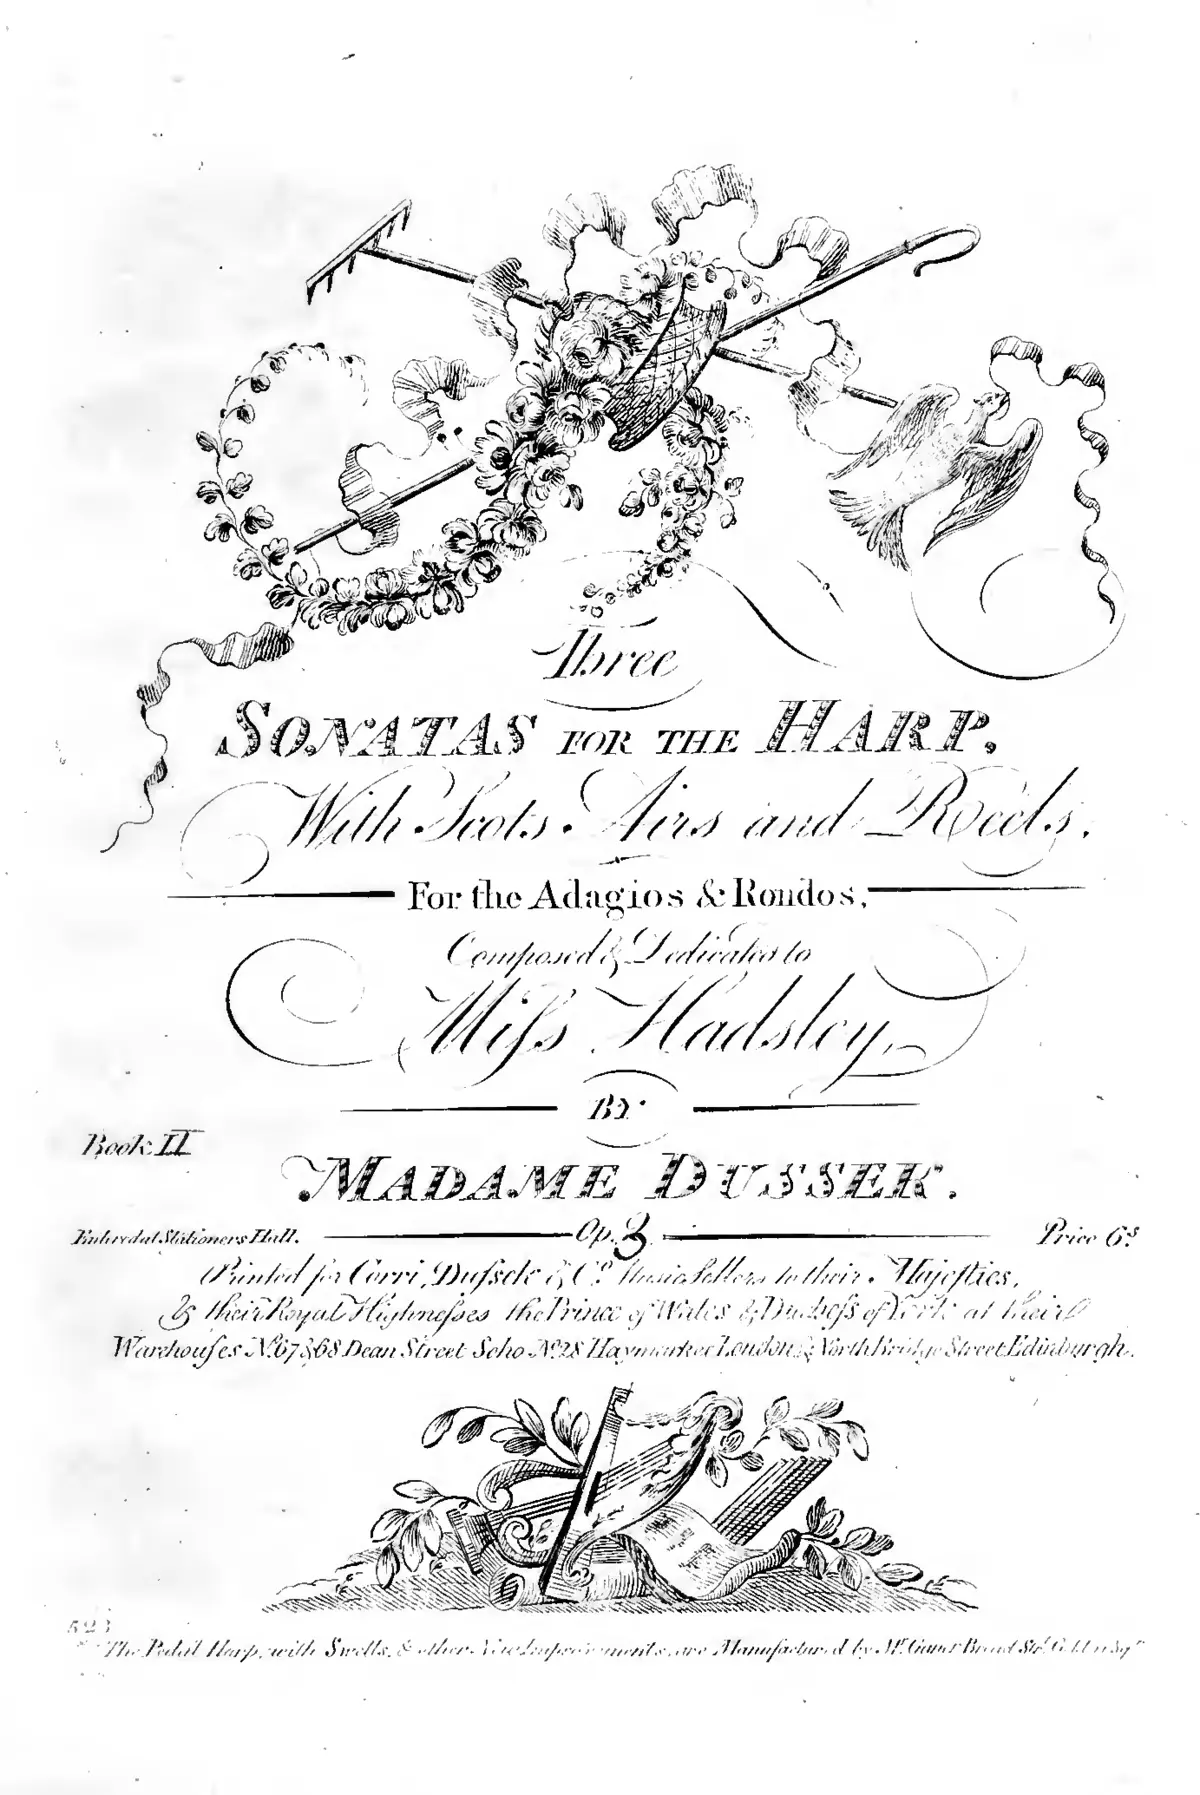 Three
SONATAS FOR THE HARP.
With Scots Airs and Reels,
For the Adagios & Rondos,
Composed & Dedicated to
Miſs Hadsley,
BY
Book II
MADAME DUSSEK.
Enter'd at Stationers Hall. Op. 2 Price 6.s
Printed for Corri, Duſsek & C.o Music Sellers to their Majeſties,
& their Royal Highneſses the Prince of Wales & Ducheſs of York at their
Warehouſes N.o 67 & 68 Dean Street Soho N.o 28 Haymarket London & North Bridge Street Edinburgh.
523
The Pedal Harp, with Swells, & other New Improvements, are Manufactured by M.r Broad Str.t Sq.r